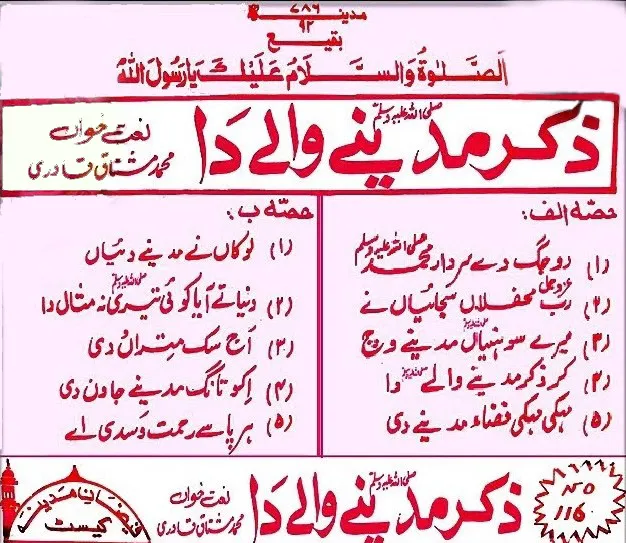 ۷۸۶
۹۲
مدینہ
بقیع
الصَّلٰوۃُ وَالسَّلَامُ عَلَیْکَ یَا رَسُولَ اللہ
ذکر مدینے والے دَا
صلی اللہ علیہ وسلم
نعت خواں
محمد مشتاق قادری
حصہ الف:
(۱) دو جگ دے سردار محمد صلی اللہ علیہ وسلم
(۲) رب عزوجل محفلاں سجائیاں نے
(۳) میرے سوہنیاں مدینے وچ
(۴) کر ذکر مدینے والے صلی اللہ علیہ وسلم دا
(۵) مہکی مہکی فضاء مدینے دی
حصہ ب:
(۱) لوکاں نے مدینے دئیاں
(۲) دنیا تے آیا کوئی تیری نہ مثال دا
(۳) اَج سک مِتراں دی
(۴) اِکو تانگ مدینے جاون دی
(۵) ہر پاسے رحمت وَسدی اے
ذکر مدینے والے دَا
صلی اللہ علیہ وسلم
نعت خواں
محمد مشتاق قادری
NO
116
فیضانِ مدینہ
کیسٹ